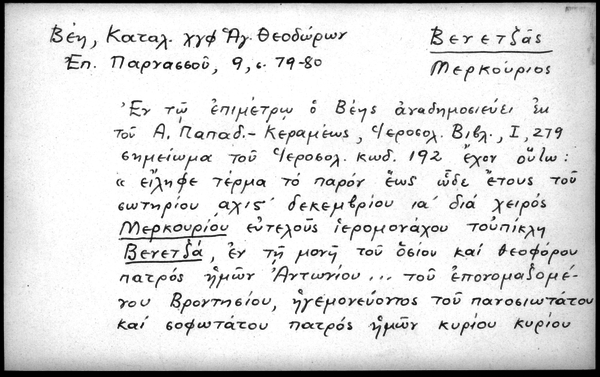 Βέη, Καταλ. χγφ Ἁγ. Θεοδώρων
Βενετζᾶς
Επ. Παρνασσοῦ, 9, σ. 79-80
Μερκούριος
Ἐν τῷ ἐπιμέτρῳ ὁ Βέης ἀναδημοσιεύει ἐκ
τοῦ Α. Παπαδ.-Κεραμέως, Ἱεροσολ. Βιβλ., I, 279
σημείωμα τοῦ Ἱεροσολ. κωδ. 192 ἔχον οὕτω:
« εἴληφε τέρμα τὸ παρόν ἕως ὧδε ἔτους τοῦ
σωτηρίου ͵αχιϛʹ δεκεμβρίου ιαʹ διά χειρός
Μερκουρίου εὐτελοῦς ἱερομονάχου τοὐπίκλη
Βενετζᾶ, ἐν τῇ μονῇ τοῦ ὁσίου καί θεοφόρου
πατρός ἡμῶν Ἀντωνίου... τοῦ ἐπονομαζομέ-
νου Βροντησίου, ἡγεμονεύοντος τοῦ πανοσιωτάτου
καί σοφωτάτου πατρός ἡμῶν κυρίου κυρίου